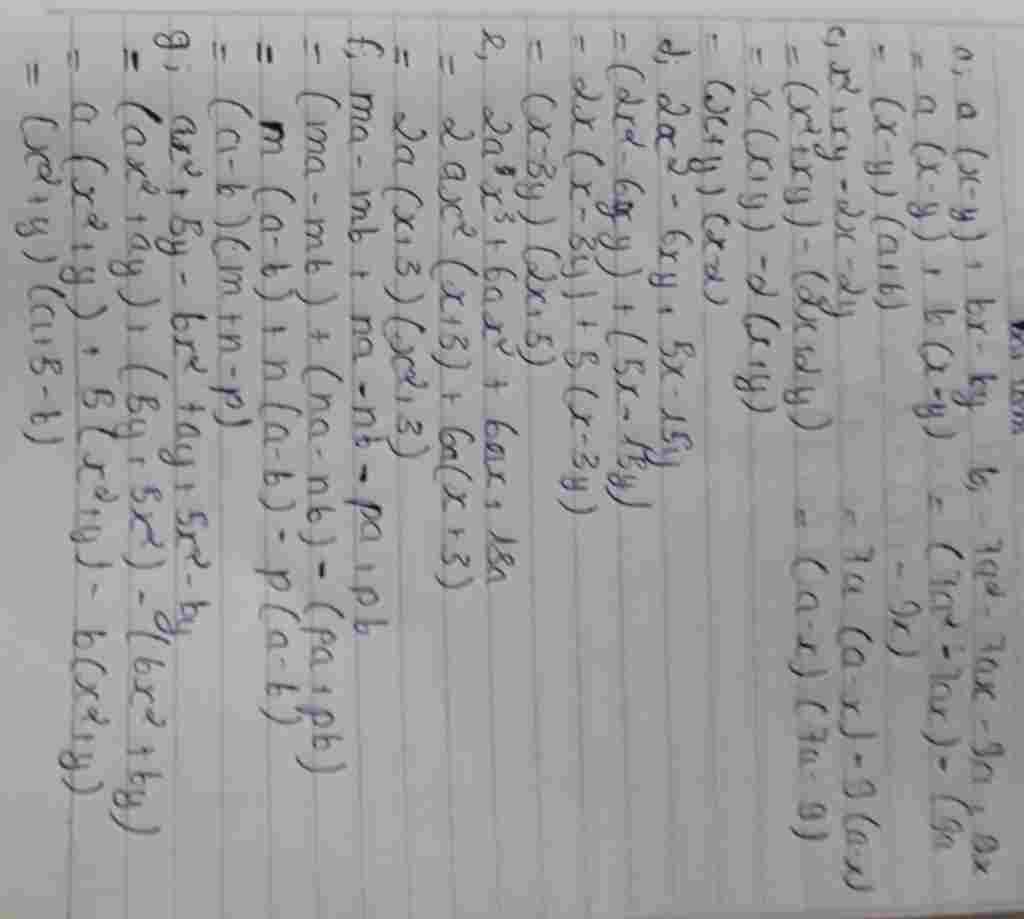 a, a(x-y) + bx - by
= a(x-y) + b(x-y)
= (x-y)(a+b)
b, 7a² - 7ax - 9a + 9x
= (7a² - 7ax) - (9a - 9x)
= 7a(a-x) - 9(a-x)
= (a-x)(7a-9)
c, x² + xy - 2x - 2y
= (x² + xy) - (2x + 2y)
= x(x+y) - 2(x+y)
= (x+y)(x-2)
d, 2x² - 6xy + 5x - 15y
= (2x² - 6xy) + (5x - 15y)
= 2x(x-3y) + 5(x-3y)
= (x-3y)(2x+5)
e, 2ax³ + 6ax² + 6ax + 18a
= 2ax²(x+3) + 6a(x+3)
= 2a(x+3)(x²+3)
f, ma - mb + na - nb - pa + pb
= (ma - mb) + (na - nb) - (pa + pb)
= m(a-b) + n(a-b) - p(a-b)
= (a-b)(m+n-p)
g, ax² + 5y - bx² + ay + 5x² - by
= (ax² + ay) + (5y + 5x²) - (bx² + by)
= a(x²+y) + 5(x²+y) - b(x²+y)
= (x²+y)(a+5-b)